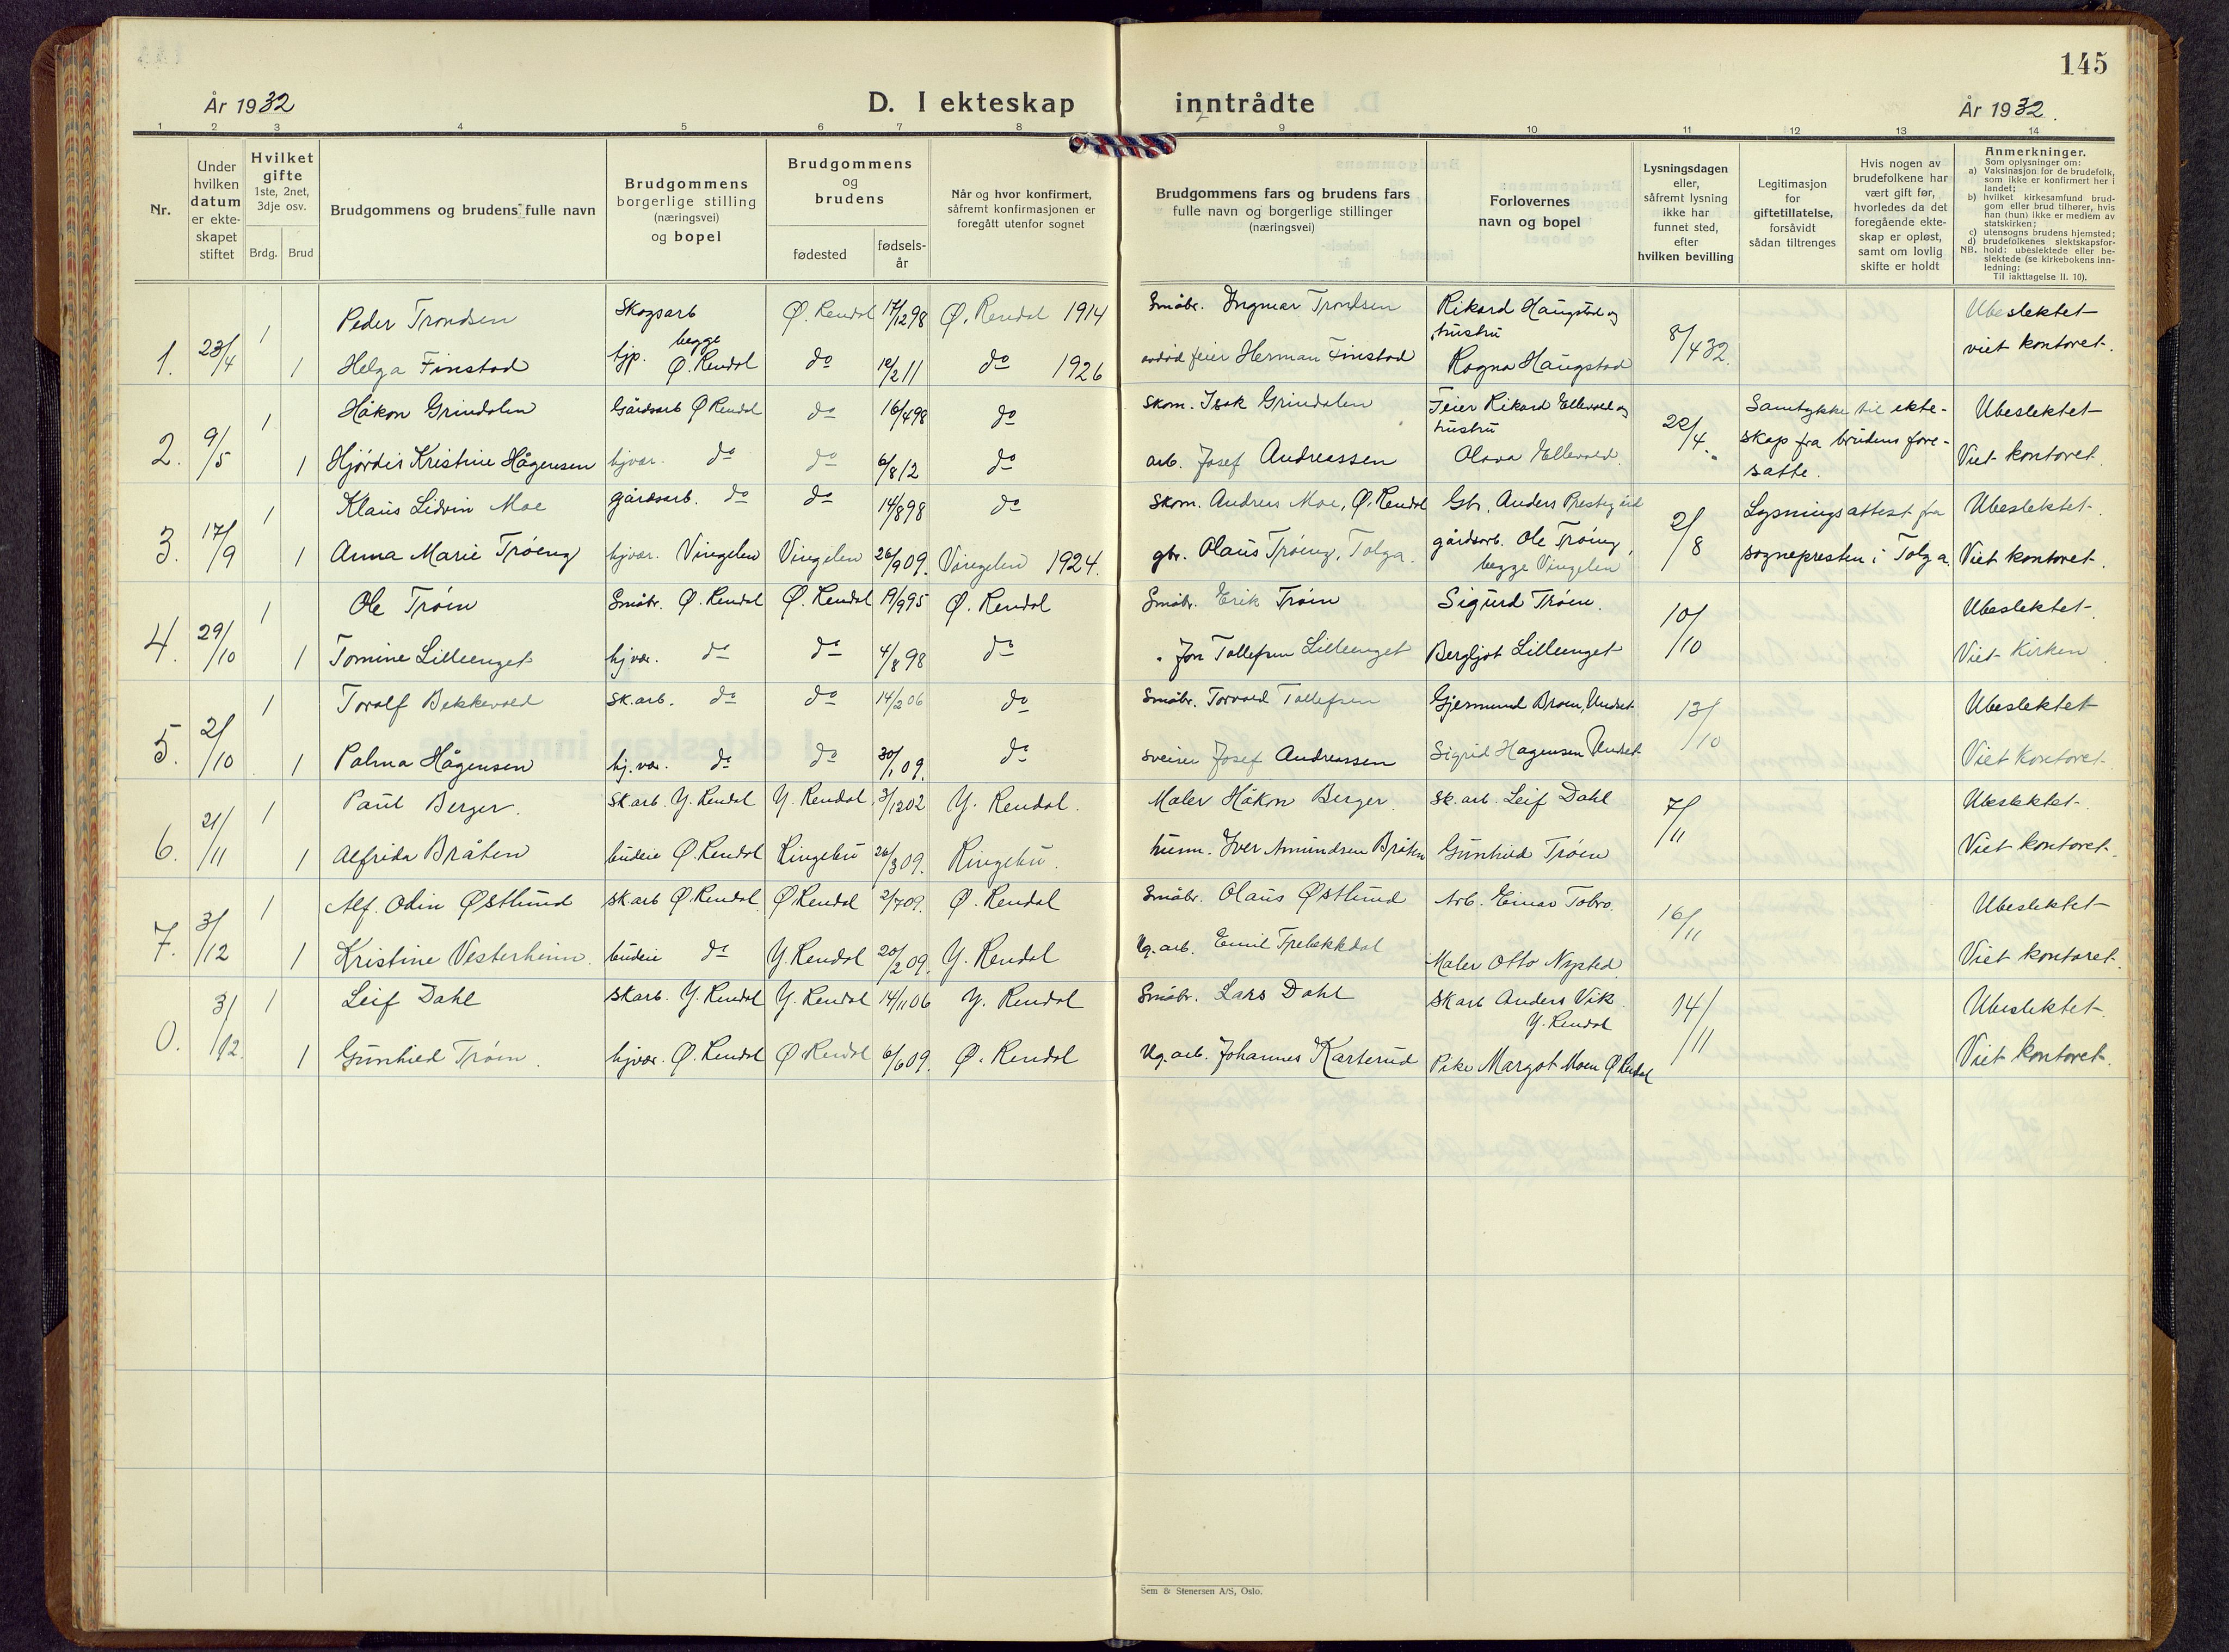 145
År 1932
D. I ekteskap inntrådte
År 1932.
1 2 3 4 5 6 7 8 9 10 11 12 13 14
Nr.
Under
hvilken
datum
er ekte-
skapet
stiftet
Hvilket
gifte
1ste, 2net,
3dje osv.
Brdg. Brud
Brudgommens og brudens fulle navn
Brudgommens
borgerlige stilling
(næringsvei)
og bopel
Brudgommens
og
brudens
fødested
fødsels-
år
Når og hvor konfirmert,
såfremt konfirmasjonen er
foregått utenfor sognet
Brudgommens fars og brudens fars
fulle navn og borgerlige stillinger
(næringsvei)
Forlovernes
navn og bopel
Lysningsdagen
eller,
såfremt lysning
ikke har
funnet sted,
efter
hvilken bevilling
Legitimasjon
for
giftetillatelse,
forsåvidt
sådan tiltrenges
Hvis nogen av
brudefolkene har
vært gift før,
hvorledes da det
foregående ekte-
skap er opløst,
samt om lovlig
skifte er holdt
Anmerkninger.
Som oplysninger om:
a) Vaksinasjon for de brudefolk,
som ikke er konfirmert her i
landet;
b) hvilket kirkesamfund brud-
gom eller brud tilhører, hvis
han (hun) ikke er medlem av
statskirken;
c) utensogns brudens hjemsted;
d) brudefolkenes slektskapsfor-
NB. hold: ubeslektede eller be-
slektede (se kirkebokens inn-
ledning;
Til iakttagelse II. 10).
1. 23/4 1 Peder Trondsen Skogsarb Ø. Rendal 17/12 98 Ø. Rendal 1914 Småbr. Ingmar Trondsen Rikard Haugstad og hustru 8/4 32. Ubeslektet
1 Helga Finstad hjp. begge Ø. Rendal do 12/2 11 do 1926 avdød feier Herman Finstad Ragna Haugstad viet kontoret.
2. 9/5 1 Håkon Grindalen Gårdsarb Ø Rendal do 16/4 98 do Skom. Isak Grindalen Feier Rikard Ellevold og hustru 22/4. Samtykke til ekte- Ubeslektet
skap fra brudens fore-
1 Hjördis Kristine Hågensen hjvær. do do 6/8 12 do arb. Josef Andreassen Olava Ellevold. satte. Viet kontoret.
3. 17/9 1 Klaus Ledvin Moe gårdsarb. do do 14/8 98 do Skom. Andreas Moe, Ø. Rendal Gbr. Anders Prestegård 2/8 Lysningsattest fra Ubeslektet.
1 Anna Marie Tröeng hjvær. Vingelen Vingelen 26/9 09. Vingelen 1924. gbr. Olaus Tröeng, Tolga. gårdsarb. Ole Tröeng, begge Vingelen sognepresten i Tolga. Viet kontoret.
4. 29/10 1 Ole Tröen Småbr. Ø. Rendal Ø. Rendal 19/9 95 Ø. Rendal Småbr. Erik Tröen Sigurd Tröen. 10/10 Ubeslektet.
1 Tomine Lilleenget hjvær. do do 4/8 98 do " Jon Tollefsen Lilleenget Bergljot Lilleenget Viet Kirken.
5. 2/10 1 Toralf Bekkevold Sk.arb. do do 14/2 06 do Småbr. Torvald Tollefsen Gjermund Broen, Undset 13/10 Ubeslektet
1 Palma Hågensen hj.vær. do do 30/1 09. do sveiser Josef Andreassen Sigrid Hagensen Undset Viet kontoret.
6. 21/11 1 Paul Berger. Sk.arb. Y. Rendal Y. Rendal 3/12 02 Y. Rendal. Maler Håkon Berger. Sk.arb. Leif Dahl 7/11 Ubeslektet.
1 Alfrida Bråten budeie Ø. Rendal Ringebu 26/3 09. Ringebu. husm. Iver Amundsen Bråten Gunhild Tröen Viet kontoret.
7. 3/12 1 Alf. Odin Østlund sk.arb Ø. Rendal Ø Rendal 2/7 09. Ø. Rendal Småbr. Olaus Østlund Arb. Einar Tobro. 16/11 Ubeslektet
1 Kristine Vesterheim. budeie do Y. Rendal 20/2 09. Y. Rendal Vg.arb. Emil Maler Otto Nysted Viet kontoret.
0. 3/12. 1 Leif Dahl Skarb. Y. Rendal Y. Rendal 14/11 06 Y. Rendal Småbr. Lars Dahl Skarb Anders Vik Y. Rendal 14/11 Ubeslektet.
1 Gunhild Tröen. hjvær. Ø. Rendal Ø Rendal 6/6 09. Ø. Rendal Vg.arb. Johannes Karterud Pike Margot Moen Ø Rendal Viet kontoret.
Sem & Stenersen A/S, Oslo.